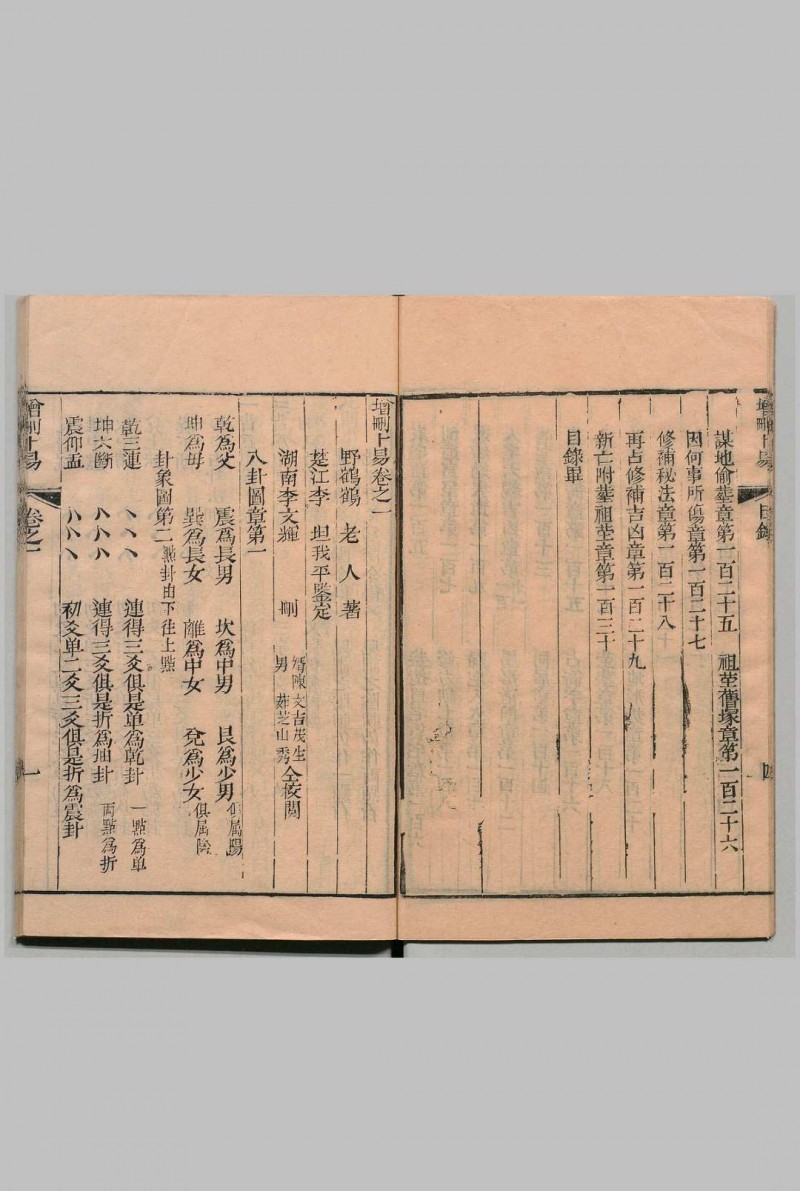 增刪卜易 目錄 四
謀地偷葬章第一百二十五 祖塋舊塚章第一百二十六
因何事所傷章第一百二十七
修補秘法章第一百二十八
再占修補吉凶章第一百二十九
新亡附葬祖塋章第一百三十
目錄畢
增刪卜易卷之一
野鶴老人著
楚江李 坦我平鑒定
湖南李文輝 刪
婿陳文吉茂生
男 茹芝山秀 仝挍閱
八卦圖章第一
乾爲父 震爲長男 坎爲中男 艮爲少男 俱属陽
坤爲母 巽爲長女 離爲中女 兌爲少女 俱属陰
卦象圖第二 點卦由下徃上點
乾三連 、、、 連得三爻俱是单爲乾卦 一點爲单
坤六斷 八八八 連得三爻俱是折爲坤卦 両點爲折
震仰盂 八八、 初爻单二爻三爻俱是折爲震卦
增刪卜易 卷之一 一